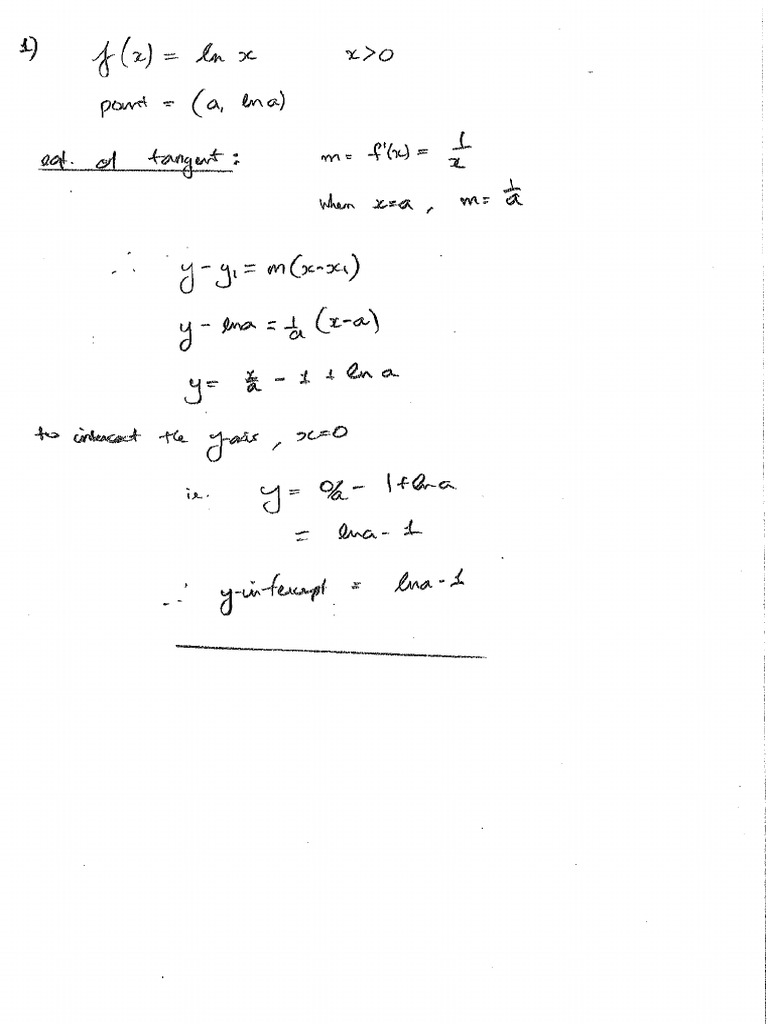 1) f(x) = ln x x>0
point = (a, ln a)
eqt. of tangent: m = f'(x) = 1/x
when x=a, m = 1/a
∴ y - y₁ = m(x-x₁)
y - ln a = 1/a (x-a)
y = x/a - 1 + ln a
to intersect the y-axis, x=0
ie. y = 0/a - 1 + ln a
= ln a - 1
∴ y-intercept = ln a - 1